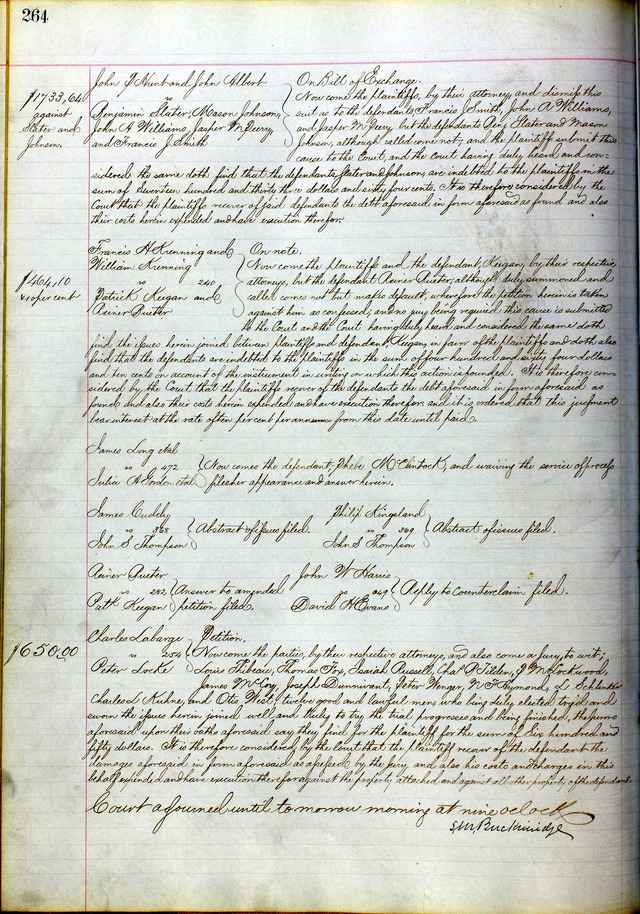 264
John J Hunt and John Albert
vs
Benjamin Slater, Mason Johnson,
John A Williams, Jasper M
and Francis J Smith
$1733,64
against
Slater and
Johnson.
On Bill of Exchange.
Now come the plaintiffs, by their attorney, and dismiss this
suit as to the defendants Francis J Smith, John A Williams,
and Jasper M but the defendants Benj. Slater and Mason
Johnson, although called come not; and the plaintiffs submit this
cause to the Court, and the Court having duly heard and con-
sidered the same doth find that the defendants, Slater and Johnson, are indebted to the plaintiffs in the
sum of Seventeen hundred and thirty three dollars and sixty four cents. It is therefore considered by the
Court that the plaintiffs recover of said defendants the debt aforesaid in form aforesaid as found and also
their costs herein expended and have execution therefor.
Francis H Krenning and
William Krenning
vs 240
Patrick Keegan and
Reiner Pueter
$464,10
10 per cent
On note.
Now come the plaintiffs and the defendant, Keegan, by their respective
attorneys, but the defendant Reiner Pueter, although duly summoned and
called comes not but makes default, wherefore the petition herein is taken
against him as confessed, and no jury being required this cause is submitted
to the Court and the Court having duly heard and considered the same doth
find the issues herein joined between plaintiffs and defendant Keegan, in favor of the plaintiffs and doth also
find that the defendants are indebted to the plaintiffs in the sum of four hundred and sixty four dollars
and ten cents on account of the instrument in writing on which the action is founded. It is therefore con-
sidered by the Court that the plaintiffs recover of the defendants the debt aforesaid in form aforesaid as
found and also their costs herein expended and have execution therefor. and it is ordered that this judgment
bear interest at the rate of ten per cent per annum from this date until paid.
James Long et al
vs 472
Julia A Gordon et al
Now comes the defendant, Phebe McClintock, and waiving the service of process
files her appearance and answer herein.
James Cuddy
vs 368
John S Thompson
Abstract of issues filed.
Philip Kingsland
vs 369
John S Thompson
Abstract of issues filed.
Reiner Pueter
vs 282
Patk Keegan
Answer to amended
petition filed.
John W Harris
vs
David H Evans
Reply to Counterclaim filed.
Charles Labarge
vs 254
Peter Locke
$650.00
Petition.
Now come the parties, by their respective attorneys, and also come a Jury to wit;
Louis Thibeau, Thomas Fry, Isaiah Russell, Chas P Tilden, J M Lockwood,
James McCoy, Joseph Dunnivant, Peter Wenger, N F Hymond, L
Charles L Kuhne, and Otis West, twelve good and lawful men who being duly elected tried and
sworn the issues herein joined well and truly to try the trial progresses and being finished, the jurors
aforesaid upon their oaths aforesaid say they find for the plaintiff for the sum of Six hundred and
fifty dollars. It is therefore considered by the Court that the plaintiff recover of the defendant the
damages aforesaid in form aforesaid as assessed by the Jury, and also his costs and charges in this
behalf expended and have execution therefor against the property attached and against all other property of the defendant.
Court adjourned until tomorrow morning at nine oclock
S.M. Breckinridge